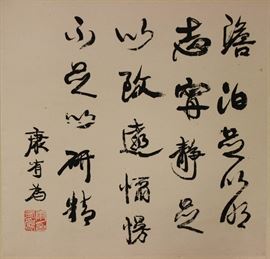 澹泊足以明
志寧靜足
以致遠慢
不足以研精
康有為